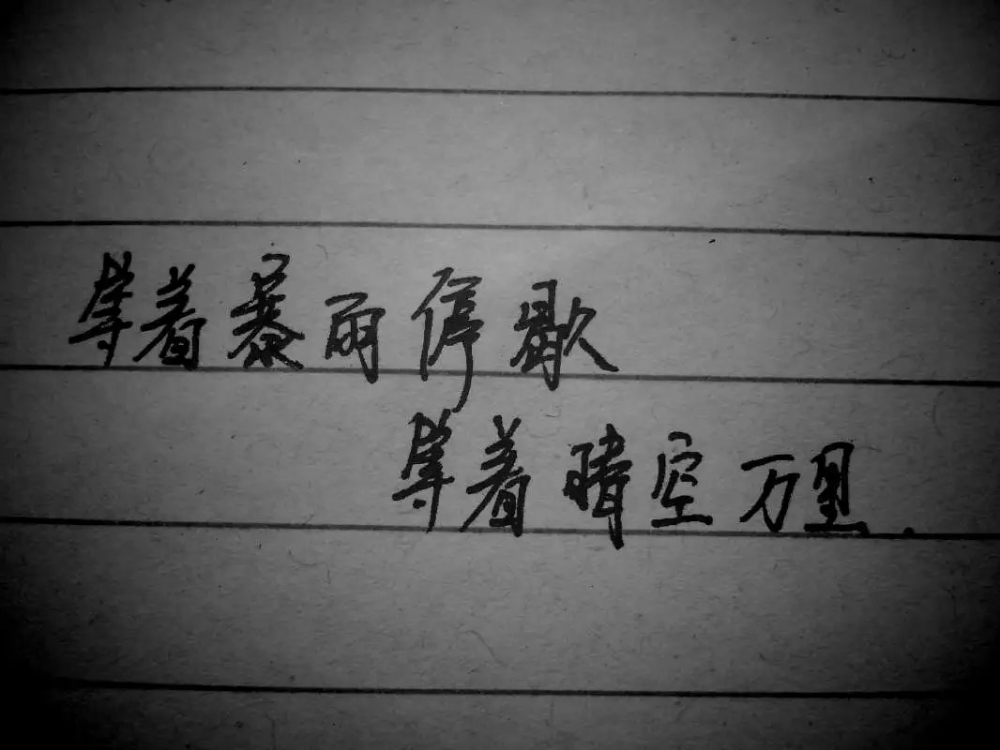 等着暴雨停歇
等着晴空万里.